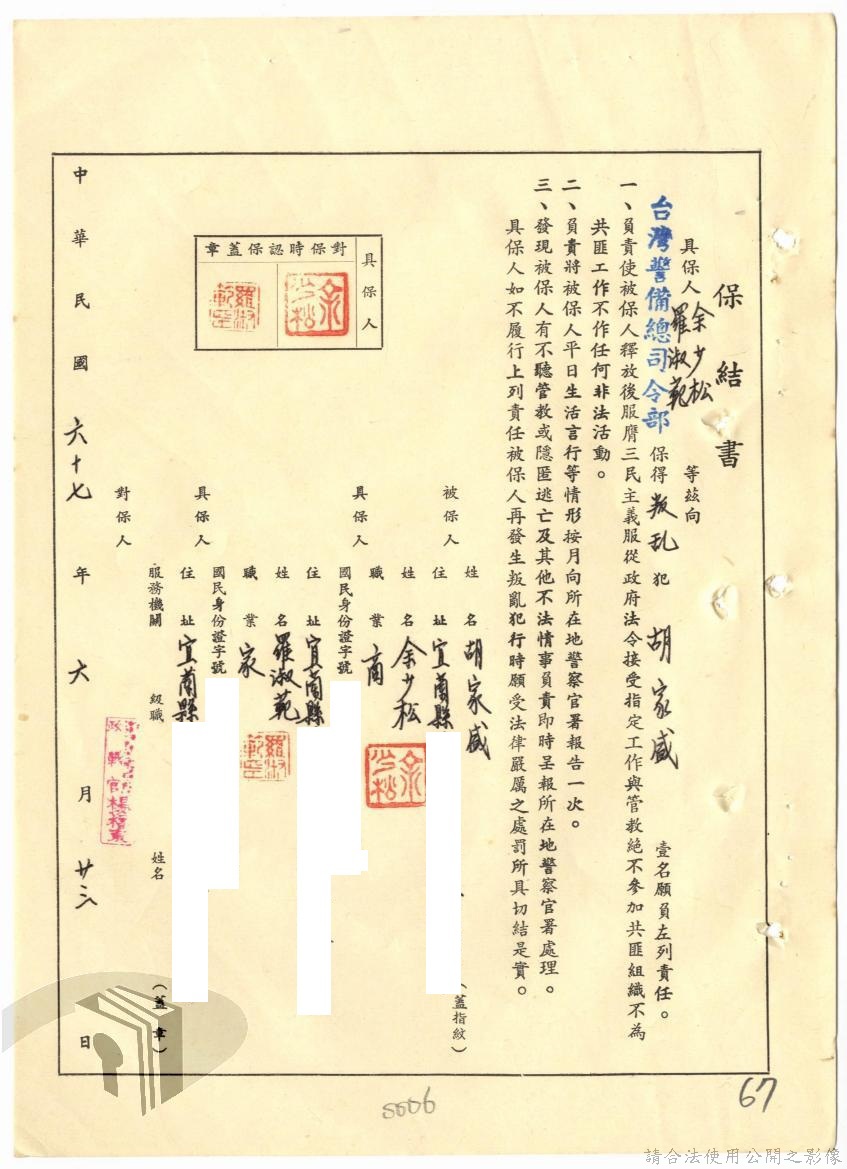 保結書
具保人 余少松 羅淑範 等茲向
台灣警備總司令部 保得 叛乱 犯 胡家盛 壹名願負左列責任。
一、負責使被保人釋放後服膺三民主義服從政府法令接受指定工作與管教絕不參加共匪組織不為
共匪工作不作任何非法活動。
二、負責將被保人平日生活言行等情形按月向所在地警察官署報告一次。
三、發現被保人有不聽管教或隱匿逃亡及其他不法情事負責即時呈報所在地警察官署處理。
具保人如不履行上列責任被保人再發生叛亂犯行時願受法律嚴厲之處罰所具切結是實。
被保人
姓名 胡家盛
住址 宜蘭縣
（蓋指紋）
具保人
姓名 余少松
職業 商
國民身份證字號
住址 宜蘭縣
余少松
具保人
姓名 羅淑範
職業 家
國民身份證字號
住址 宜蘭縣
羅淑範印
對保人
服務機關 級職 姓名 （蓋章）
具保人
對保時認保蓋章
余少松
羅淑範印
中華民國 六十七 年 六 月 廿三 日
5006
67
請合法使用公開之影像